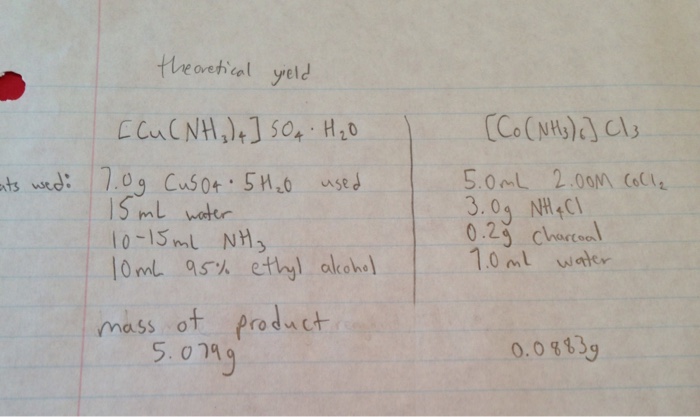 theoretical yield
[Cu(NH₃)₄] SO₄ · H₂O
[Co(NH₃)₆] Cl₃
nts used:
7.0g CuSO₄ · 5H₂O used
15 mL water
10-15mL NH₃
10mL 95% ethyl alcohol
5.0mL 2.00M CoCl₂
3.0g NH₄Cl
0.2g charcoal
7.0 mL water
mass of product
5.079g
0.0883g